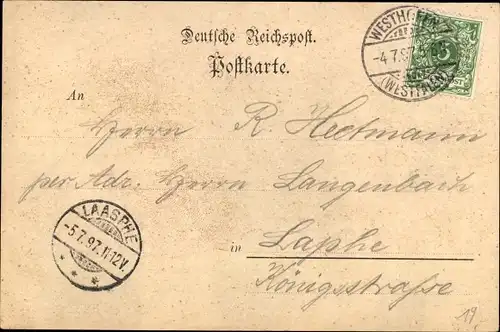 Deutsche Reichspost.
Postkarte.
WESTHOFEN
-4 7.97
(WESTFALEN)
5
An
Herrn R. Hectmann
per Adr. Herrn Langenbach
in Laphe
Königsstraße
LAASPHE
-5.7.97.11-12V.
19.